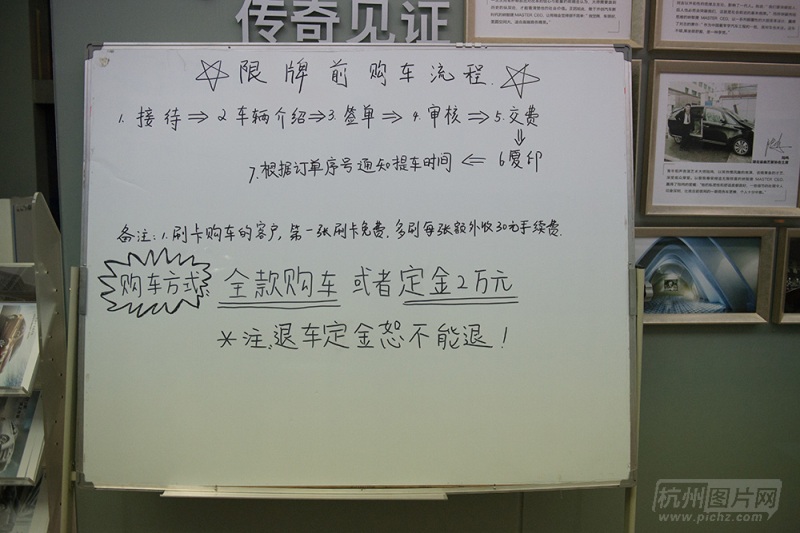 传奇见证
☆限牌前购车流程.☆
1.接待⇒2车辆介绍⇒3.签单⇒4.审核⇒5.交费
⇓
7.根据订单序号通知提车时间⇐6复印
备注:1.刷卡购车的客户,第一张刷卡免费,多刷每张额外收30元手续费.
购车方式: 全款购车 或者定金2万元
*注:退车定金恕不能退!
杭州图片网
www.pichz.com